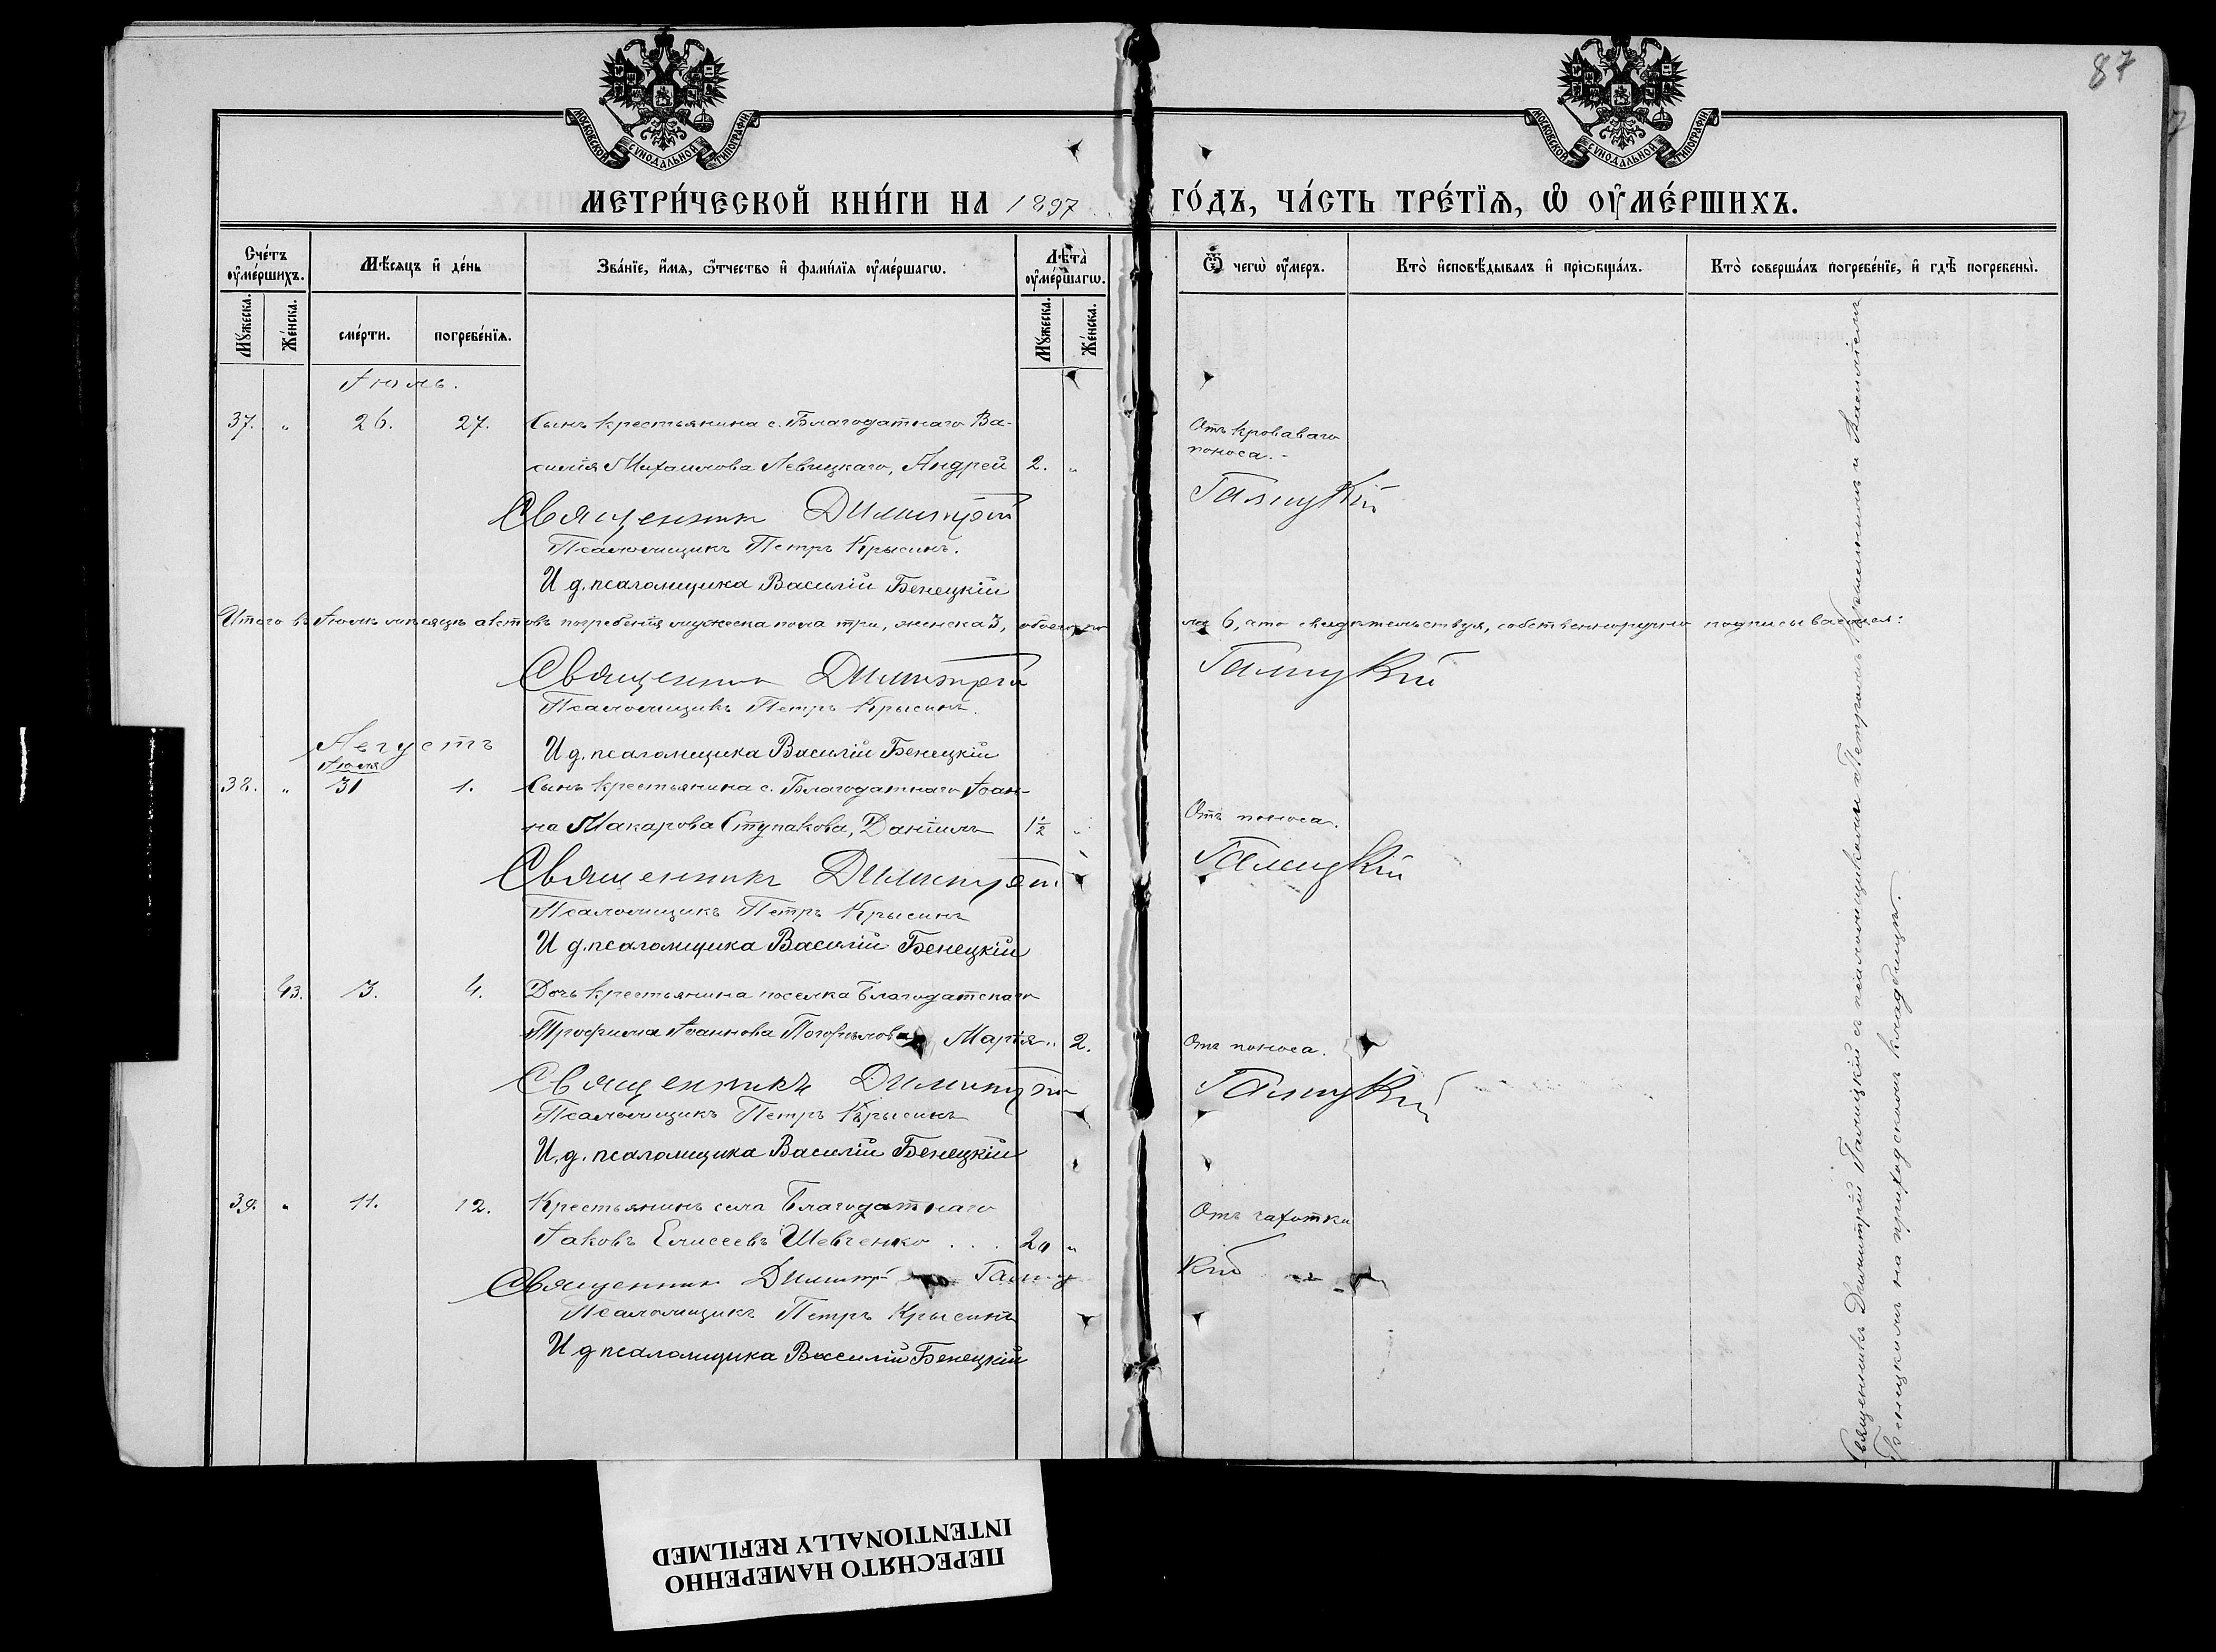 87
МОСКОВСКОЙ СУНОДАЛЬНОЙ ТИПОГРАФІИ
МОСКОВСКОЙ СУНОДАЛЬНОЙ ТИПОГРАФІИ
МЕТРИ́ЧЕСКОЙ КНИ́ГИ НА 1897 ГО́ДЪ, ЧА́СТЬ ТРЕ́ТЇѦ, Ѡ ОУМЕ́РШИХЪ.
Сче́тъ оуме́ршихъ.
Мѣ́сяцъ и де́нь
Зва́нїе, и́мя, ѻ́тчество и фами́лїя оуме́ршагѡ.
Лѣта̀ оуме́ршагѡ.
Ѿ чегѡ̀ оу́меръ.
Кто̀ и҆сповѣ́дывалъ и прїѡбща́лъ.
Кто̀ соверша́лъ погребе́нїе, и гдѣ̀ погребены̀.
Му́жеска.
Же́нска.
сме́рти.
погребе́нїя.
Му́жеска.
Же́нска.
Іюль.
37. „ 26. 27. Сынъ крестьянина с. Благодатнаго Ва-
силія Михаилова Левицкаго, Андрей 2. „
Отъ кроваваго
поноса.-
Священник Димитрій Галицкій
Псаломщикъ Петръ Крысинъ.
И д. псаломщика Василій Бенецкій
Итого въ Іюлѣ мѣсяцѣ актовъ погребенія мужеска пола три, женска 3, обоего по
ла 6, что свидѣтельствуя, собственноручно подписываемся:
Священник Димитрій Галицкій
Псаломщикъ Петръ Крысинъ.
И д. псаломщика Василій Бенецкій
Августъ
Іюля
38. „ 31 1. Сынъ крестьянина с. Благодатнаго Іоан-
на Макарова Ступакова, Даніилъ 1½ „
Отъ поноса.
Священникъ Димитрій Галицкій
Псаломщикъ Петръ Крысинъ
И д. псаломщика Василій Бенецкій
43. 3. 4. Дочь крестьянина поселка Благодатскаго
Трофима Іоаннова Погорѣлова Марія „ 2.
Отъ поноса.
Священникъ Димитрій Галицкій
Псаломщикъ Петръ Крысинъ
И. д. псаломщика Василій Бенецкій
39. „ 11. 12. Крестьянинъ села Благодатнаго
Іаковъ Елисеевъ Шевченко . . . 20 „
Отъ чахотки
Священник Димитр Галицкій
Псаломщикъ Петръ Крысинъ
И д псаломщика Василій Бенецкій
Священникъ Димитрій Галицкій съ псаломщиками Петромъ Крысинымъ и Василіемъ
Бенецкимъ на приходскомъ кладбищѣ.
ПЕРЕСНЯТО НАМЕРЕННО
INTENTIONALLY REFILMED